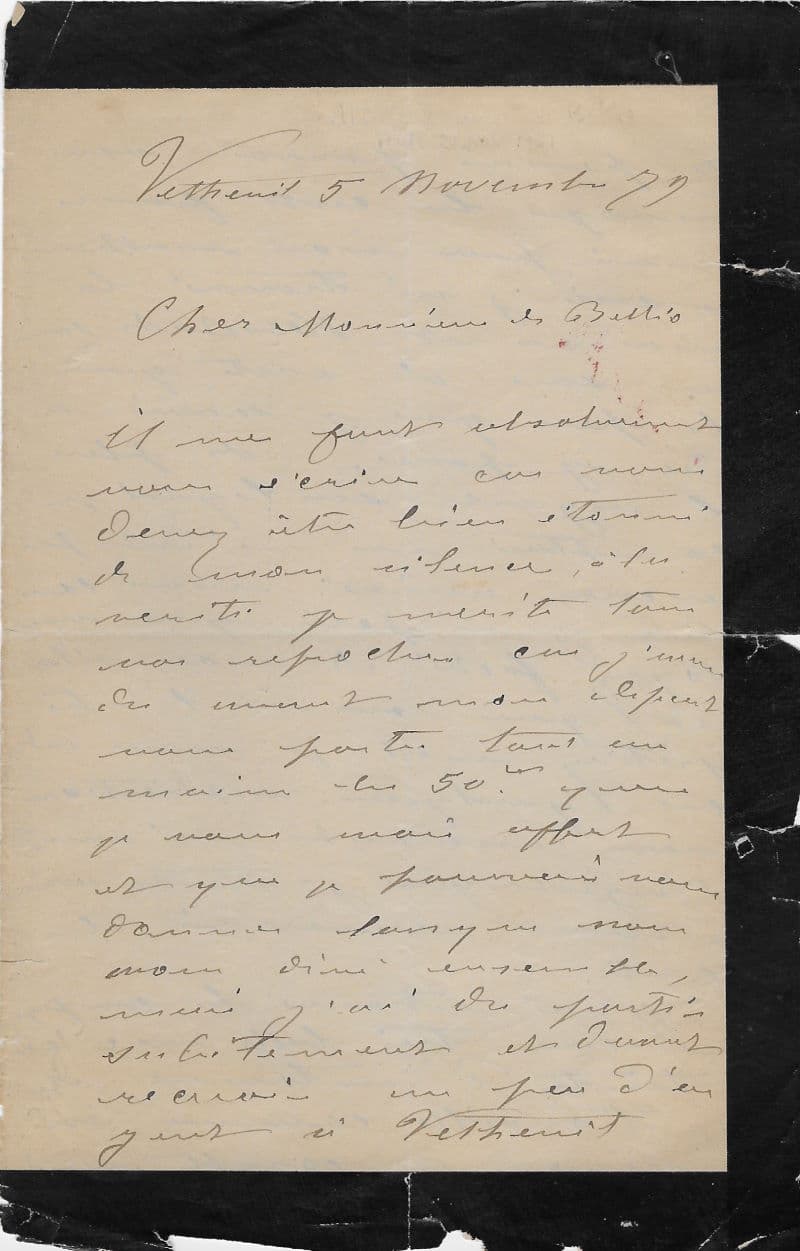 Vetheuil 5 Novembre 79
Cher Monsieur de Bellio
Il me faut absolument
vous écrire car vous
devez être bien étonné
de mon silence, à la
verité je merite tous
vos reproches car j'aurai
du avant mon depart
vous porter tout au
moins les 50 que
je vous avais offert
et que je pouvais vous
donner lorsque nous
avons diné ensemble,
mais j'ai du partir
subitement et devant
recevoir un peu d'ar
gent à Vetheuil